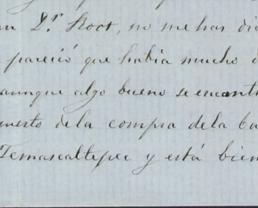 n Dr. Root, no me has di
pareció que había mucho
aunque algo bueno se encont
uesto de la compra de la ca
Temascaltepec y está bien